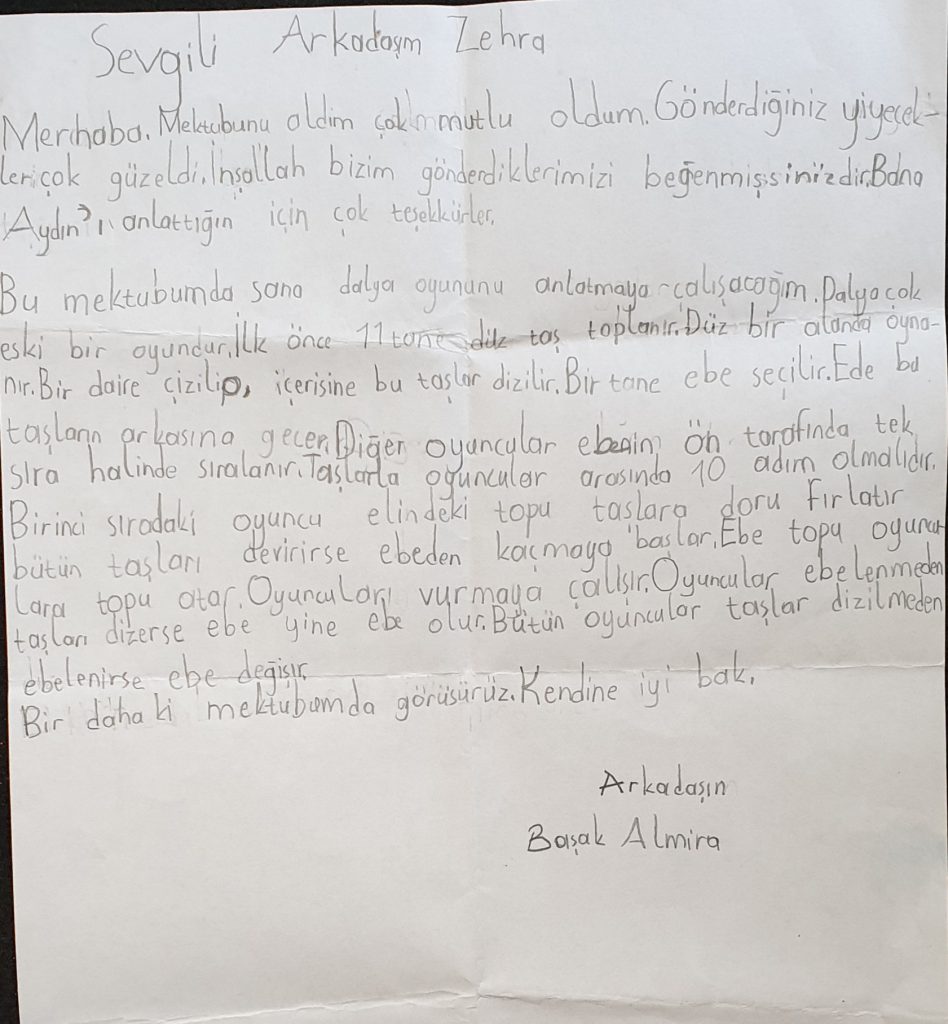 Sevgili Arkadaşım Zehra
Merhaba. Mektubunu aldim çok mutlu oldum. Gönderdiğiniz yiyecek-
leri çok güzeldi. İnşallah bizim gönderdiklerimizi beğenmişsinizdir. Bana
Aydın'ı anlattığın için çok teşekkürler.
Bu mektubumda sana dalya oyununu anlatmaya çalışacağım. Dalya çok
eski bir oyundur. İlk önce 11 tane düz taş toplanır. Düz bir alanda oyna-
nır. Bir daire çizilip, içerisine bu taşlar dizilir. Bir tane ebe seçilir. Ede bu
taşların arkasına geçer. Diğer oyuncular ebenin ön tarafında tek
sıra halinde sıralanır. Taşlarla oyuncular arasında 10 adım olmalıdır.
Birinci sıradaki oyuncu elindeki topu taşlara doru fırlatır
bütün taşları devirirse ebeden kaçmaya başlar. Ebe topu oyuncu
lara topu atar. Oyuncuları vurmaya çalışır. Oyuncular ebelenmeden
taşları dizerse ebe yine ebe olur. Bütün oyuncular taşlar dizilmeden
ebelenirse ebe değişir.
Bir daha ki mektubumda görüşürüz. Kendine iyi bak.
Arkadaşın
Başak Almira